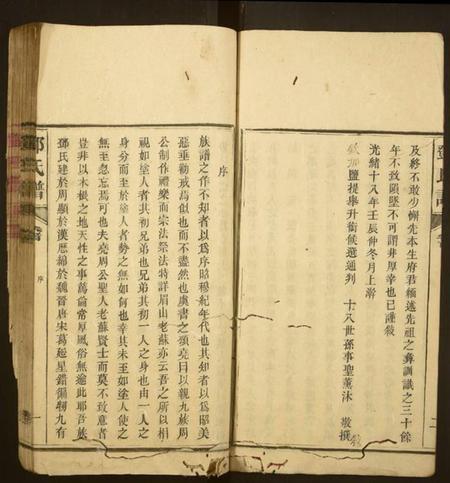 及終不敢少懈先本生府君緬述先祖之彝訓識之三十餘
年不致隕墜不可謂非厚幸也已謹敘
光緒十八年壬辰仲冬月上澣
鹽提舉升銜候選通判 十八世孫事聖薰沐 敬撰
鄧氏譜
序
序
族譜之作不知者以為序昭穆紀年代也其知者以為昭美
惡垂勸戒焉似也而不盡然也虞書之頌堯曰以親九族周
公制作禮樂而宗法祭法特詳眉山老蘇亦云吾之所以相
視如塗人者其初兄弟也兄弟其初一人之身也由一人之
身分而至於塗人者勢也勢無如何也幸其未至如塗人使之
無至忽忘焉可也夫堯周公聖人老蘇賢士而莫不致意者
豈非以木根之地天性之事萬倫常厚風俗無逾此耶吾族
鄧氏建於周顯於漢歷綿於魏晉唐宋葛藟星錯徧九有